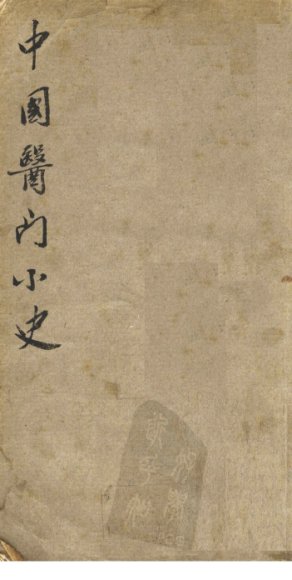 中國醫門小史